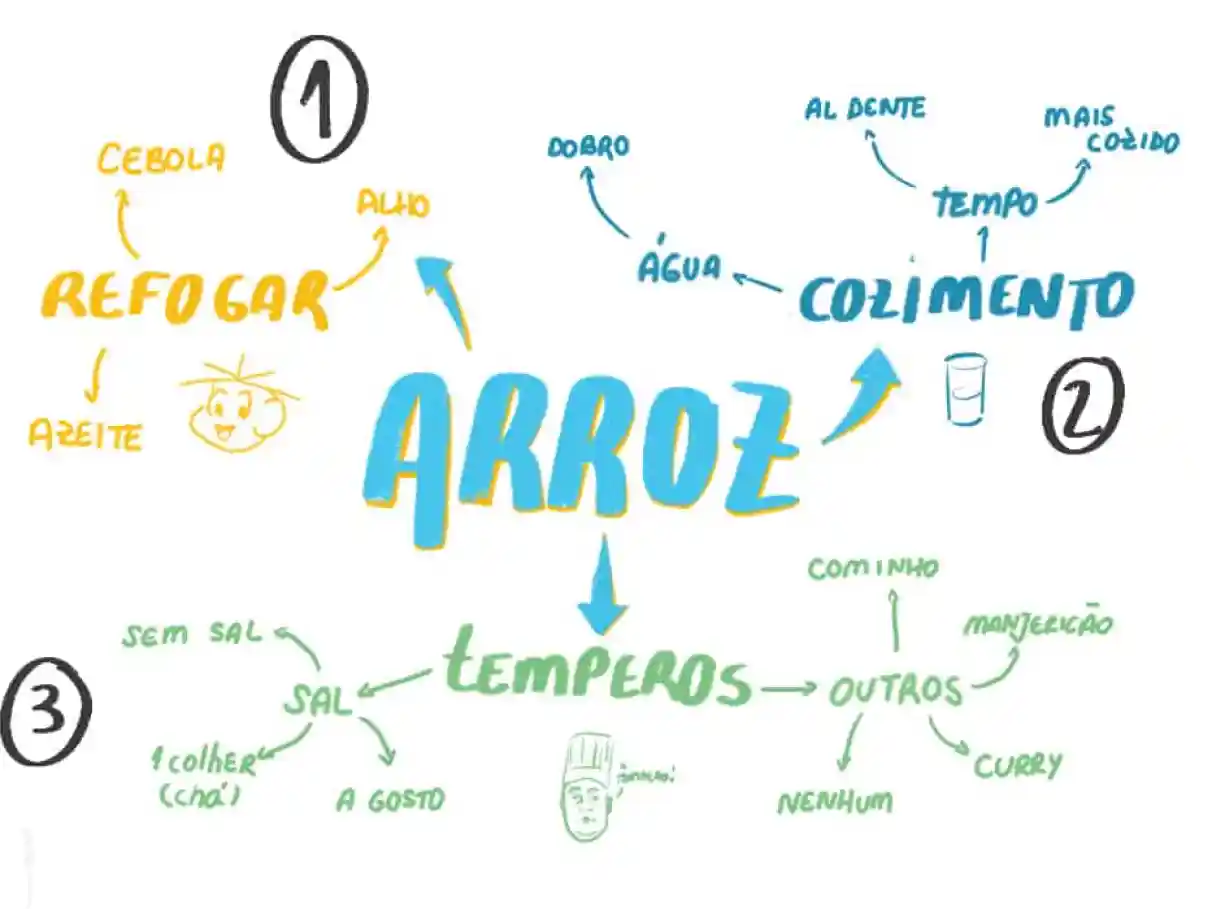 1
CEBOLA
ALHO
REFOGAR
AZEITE
AL DENTE
MAIS
COZIDO
DOBRO
TEMPO
ÁGUA
COZIMENTO
2
ARROZ
3
TEMPEROS
SEM SAL
SAL
1 colHER
(chá)
A GOSTO
COMINHO
MANJERICÃO
OUTROS
CURRY
NENHUM